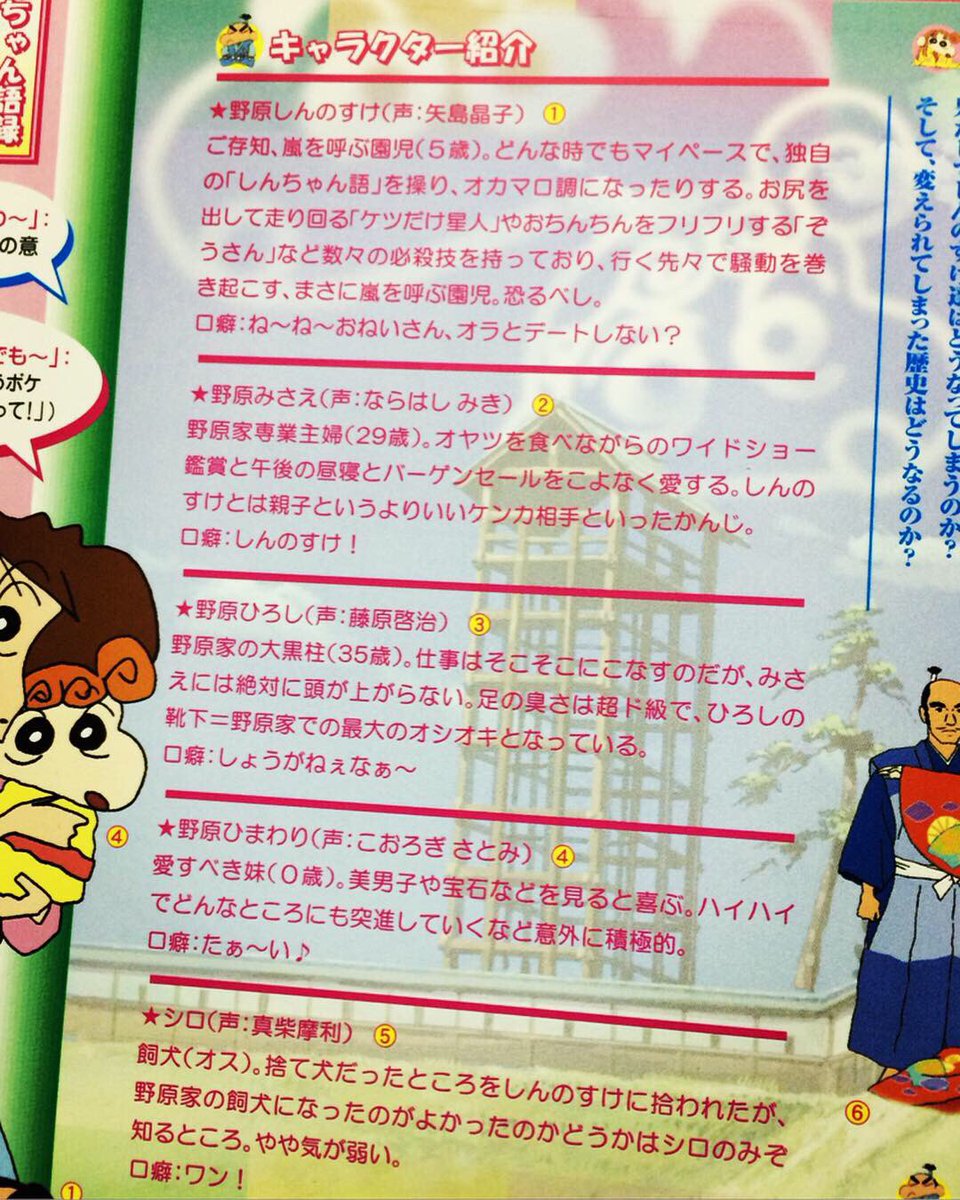 キャラクター紹介
★野原しんのすけ(声：矢島晶子) ①
ご存知、嵐を呼ぶ園児(5歳)。どんな時でもマイペースで、独自
の「しんちゃん語」を操り、オカマロ調になったりする。お尻を
出して走り回る「ケツだけ星人」やおちんちんをフリフリする「ぞ
うさん」など数々の必殺技を持っており、行く先々で騒動を巻
き起こす、まさに嵐を呼ぶ園児。恐るべし。
口癖：ね〜ね〜おねいさん、オラとデートしない？
★野原みさえ(声：ならはし みき) ②
野原家専業主婦(29歳)。オヤツを食べながらのワイドショー
鑑賞と午後の昼寝とバーゲンセールをこよなく愛する。しんの
すけとは親子というよりいいケンカ相手といったかんじ。
口癖：しんのすけ！
★野原ひろし(声：藤原啓治) ③
野原家の大黒柱(35歳)。仕事はそこそこにこなすのだが、みさ
えには絶対に頭が上がらない。足の臭さは超ド級で、ひろしの
靴下＝野原家での最大のオシオキとなっている。
口癖：しょうがねぇなぁ〜
★野原ひまわり(声：こおろぎ さとみ) ④
愛すべき妹(0歳)。美男子や宝石などを見ると喜ぶ。ハイハイ
でどんなところにも突進していくなど意外に積極的。
口癖：たぁ〜い♪
★シロ(声：真柴摩利) ⑤
飼犬(オス)。捨て犬だったところをしんのすけに拾われたが、
野原家の飼犬になったのがよかったのかどうかはシロのみぞ
知るところ。やや気が弱い。
口癖：ワン！
ちゃん語録
〜」：
の意
でも〜」：
うボケ
って！」)
④
①
しんのすけ達はどうなってしまうのか？
そして、変えられてしまった歴史はどうなるのか？
⑥